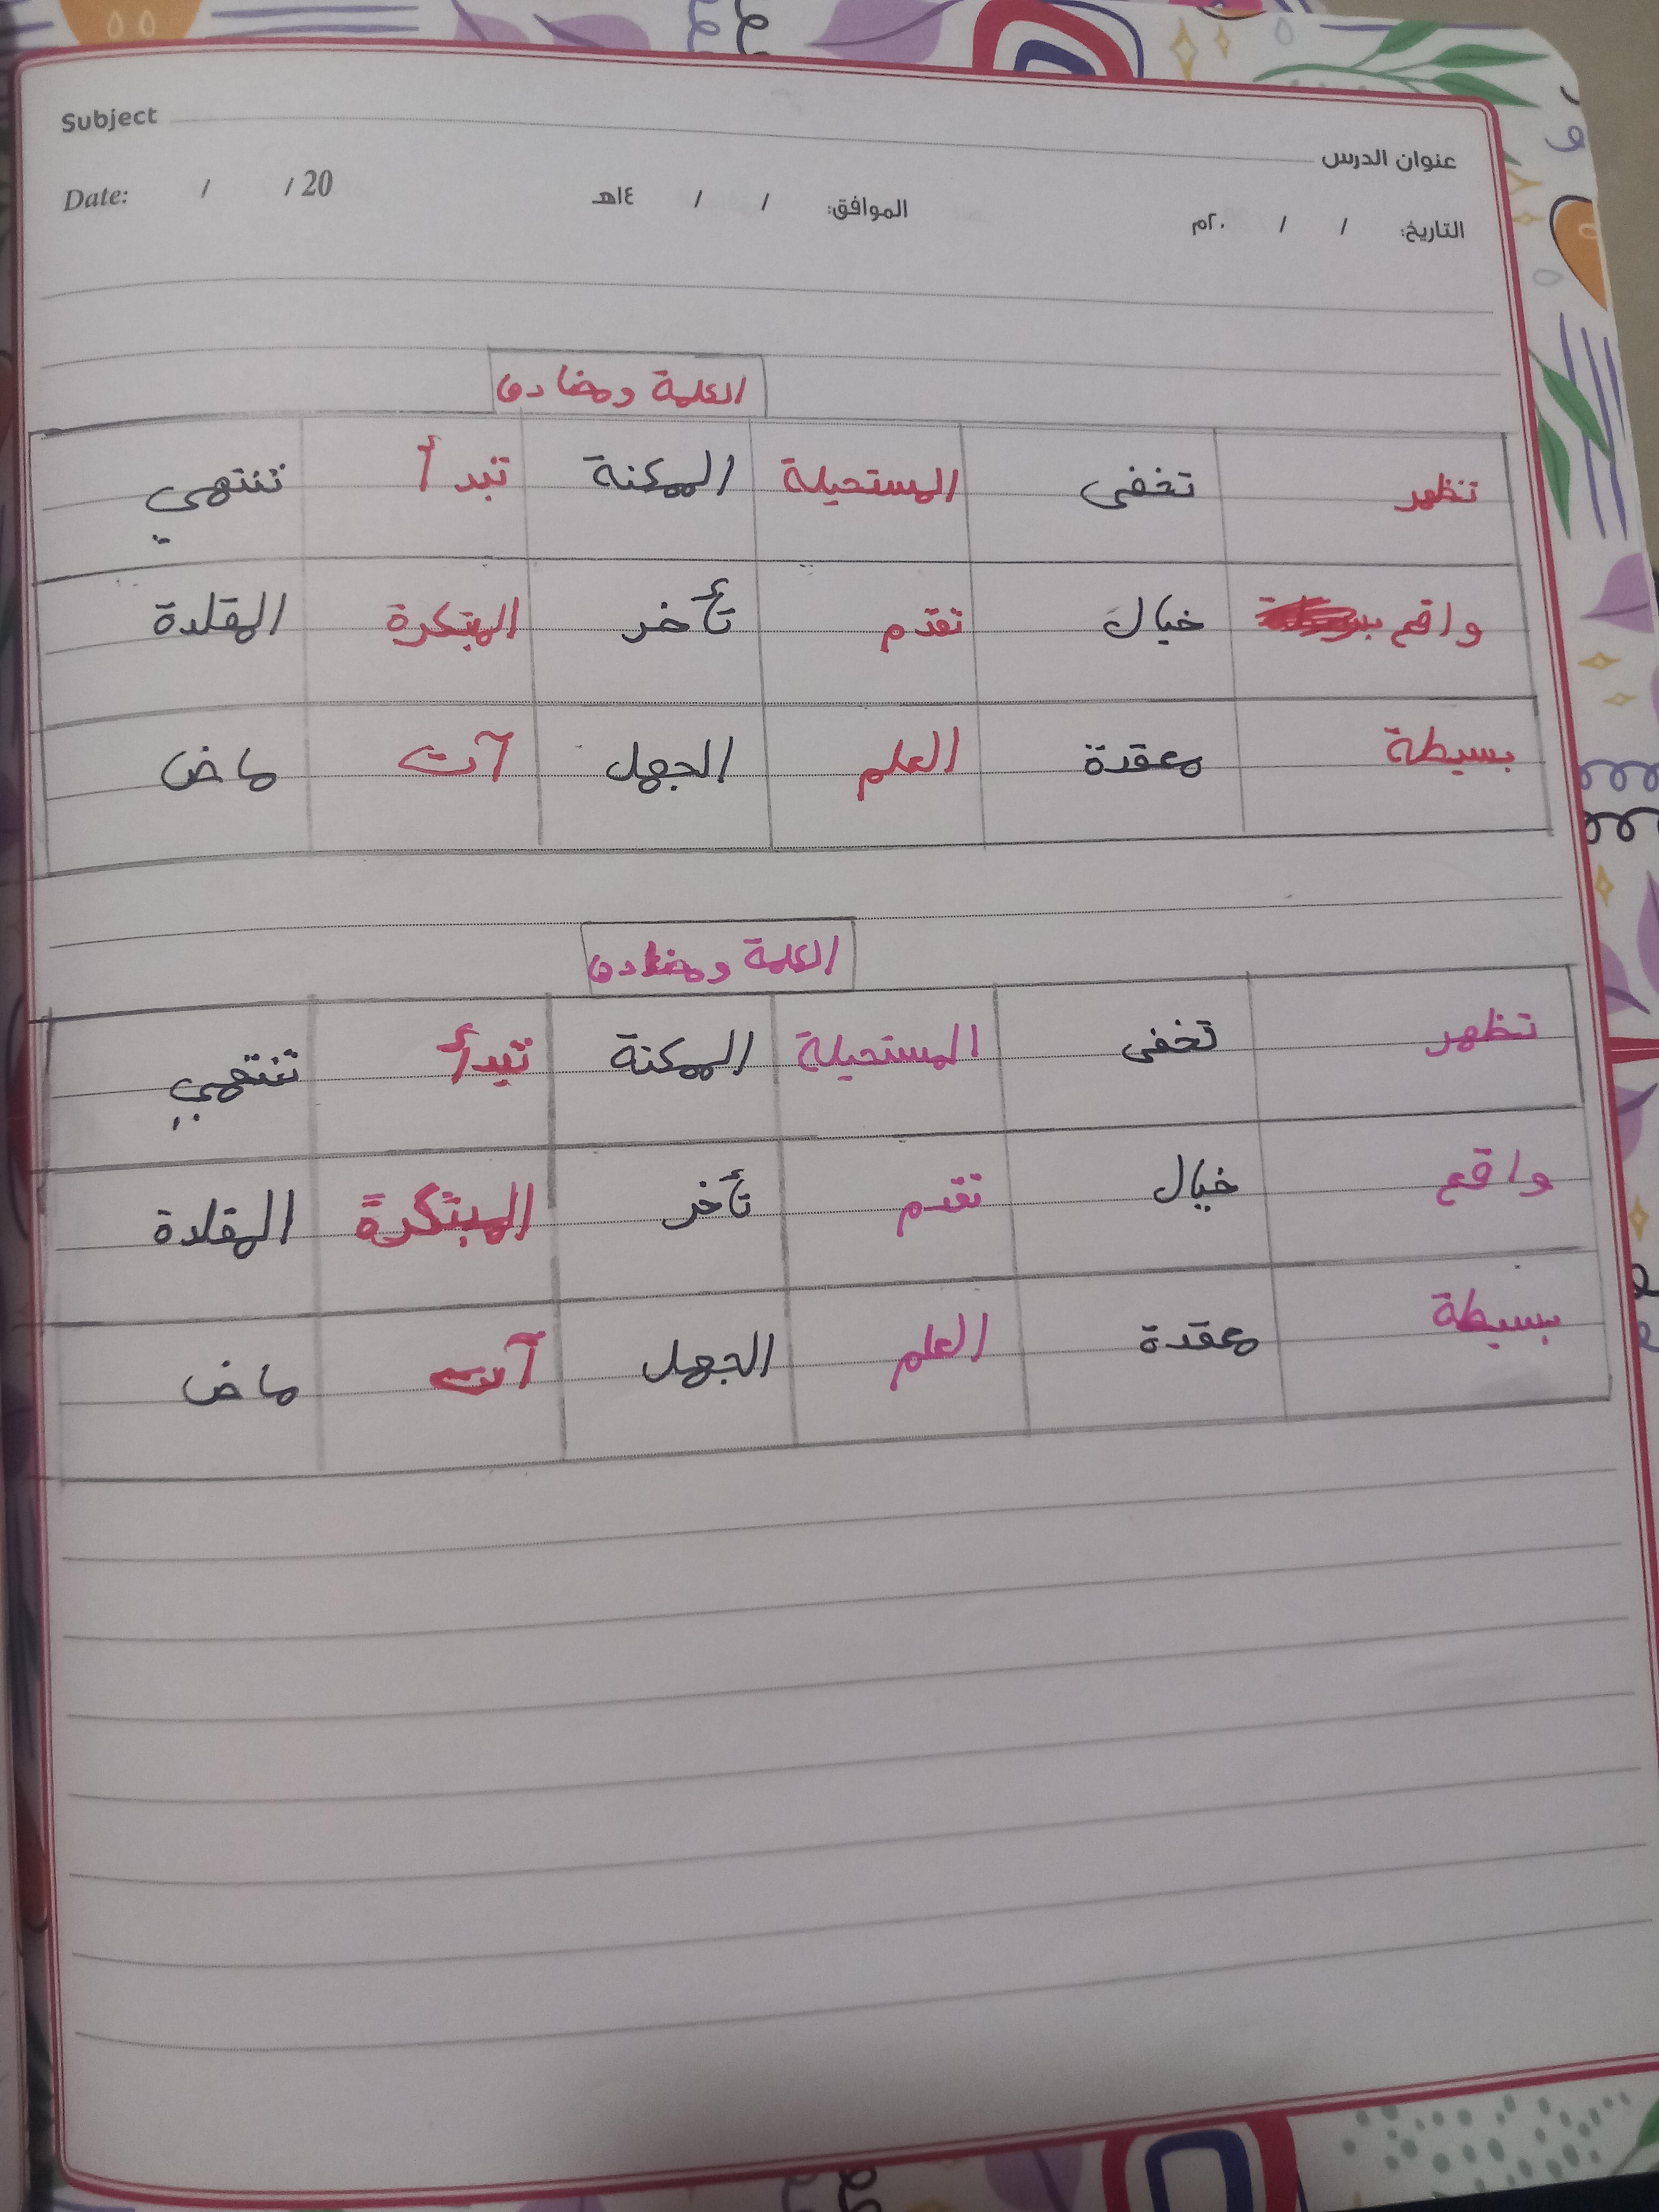 Subject عنوان الدرس
التاريخ: / / ٢٠م الموافق: / / ١٤هـ Date: / / 20
الكلمة ومضادها
تظهر تخفى المستحيلة الممكنة تبدأ تنتهي
واقع خيال تقدم تأخر المبتكرة المقلدة
بسيطة معقدة العلم الجهل آت ماض
الكلمة ومضادها
تظهر تخفى المستحيلة الممكنة تبدأ تنتهي
واقع خيال تقدم تأخر المبتكرة المقلدة
بسيطة معقدة العلم الجهل آت ماض